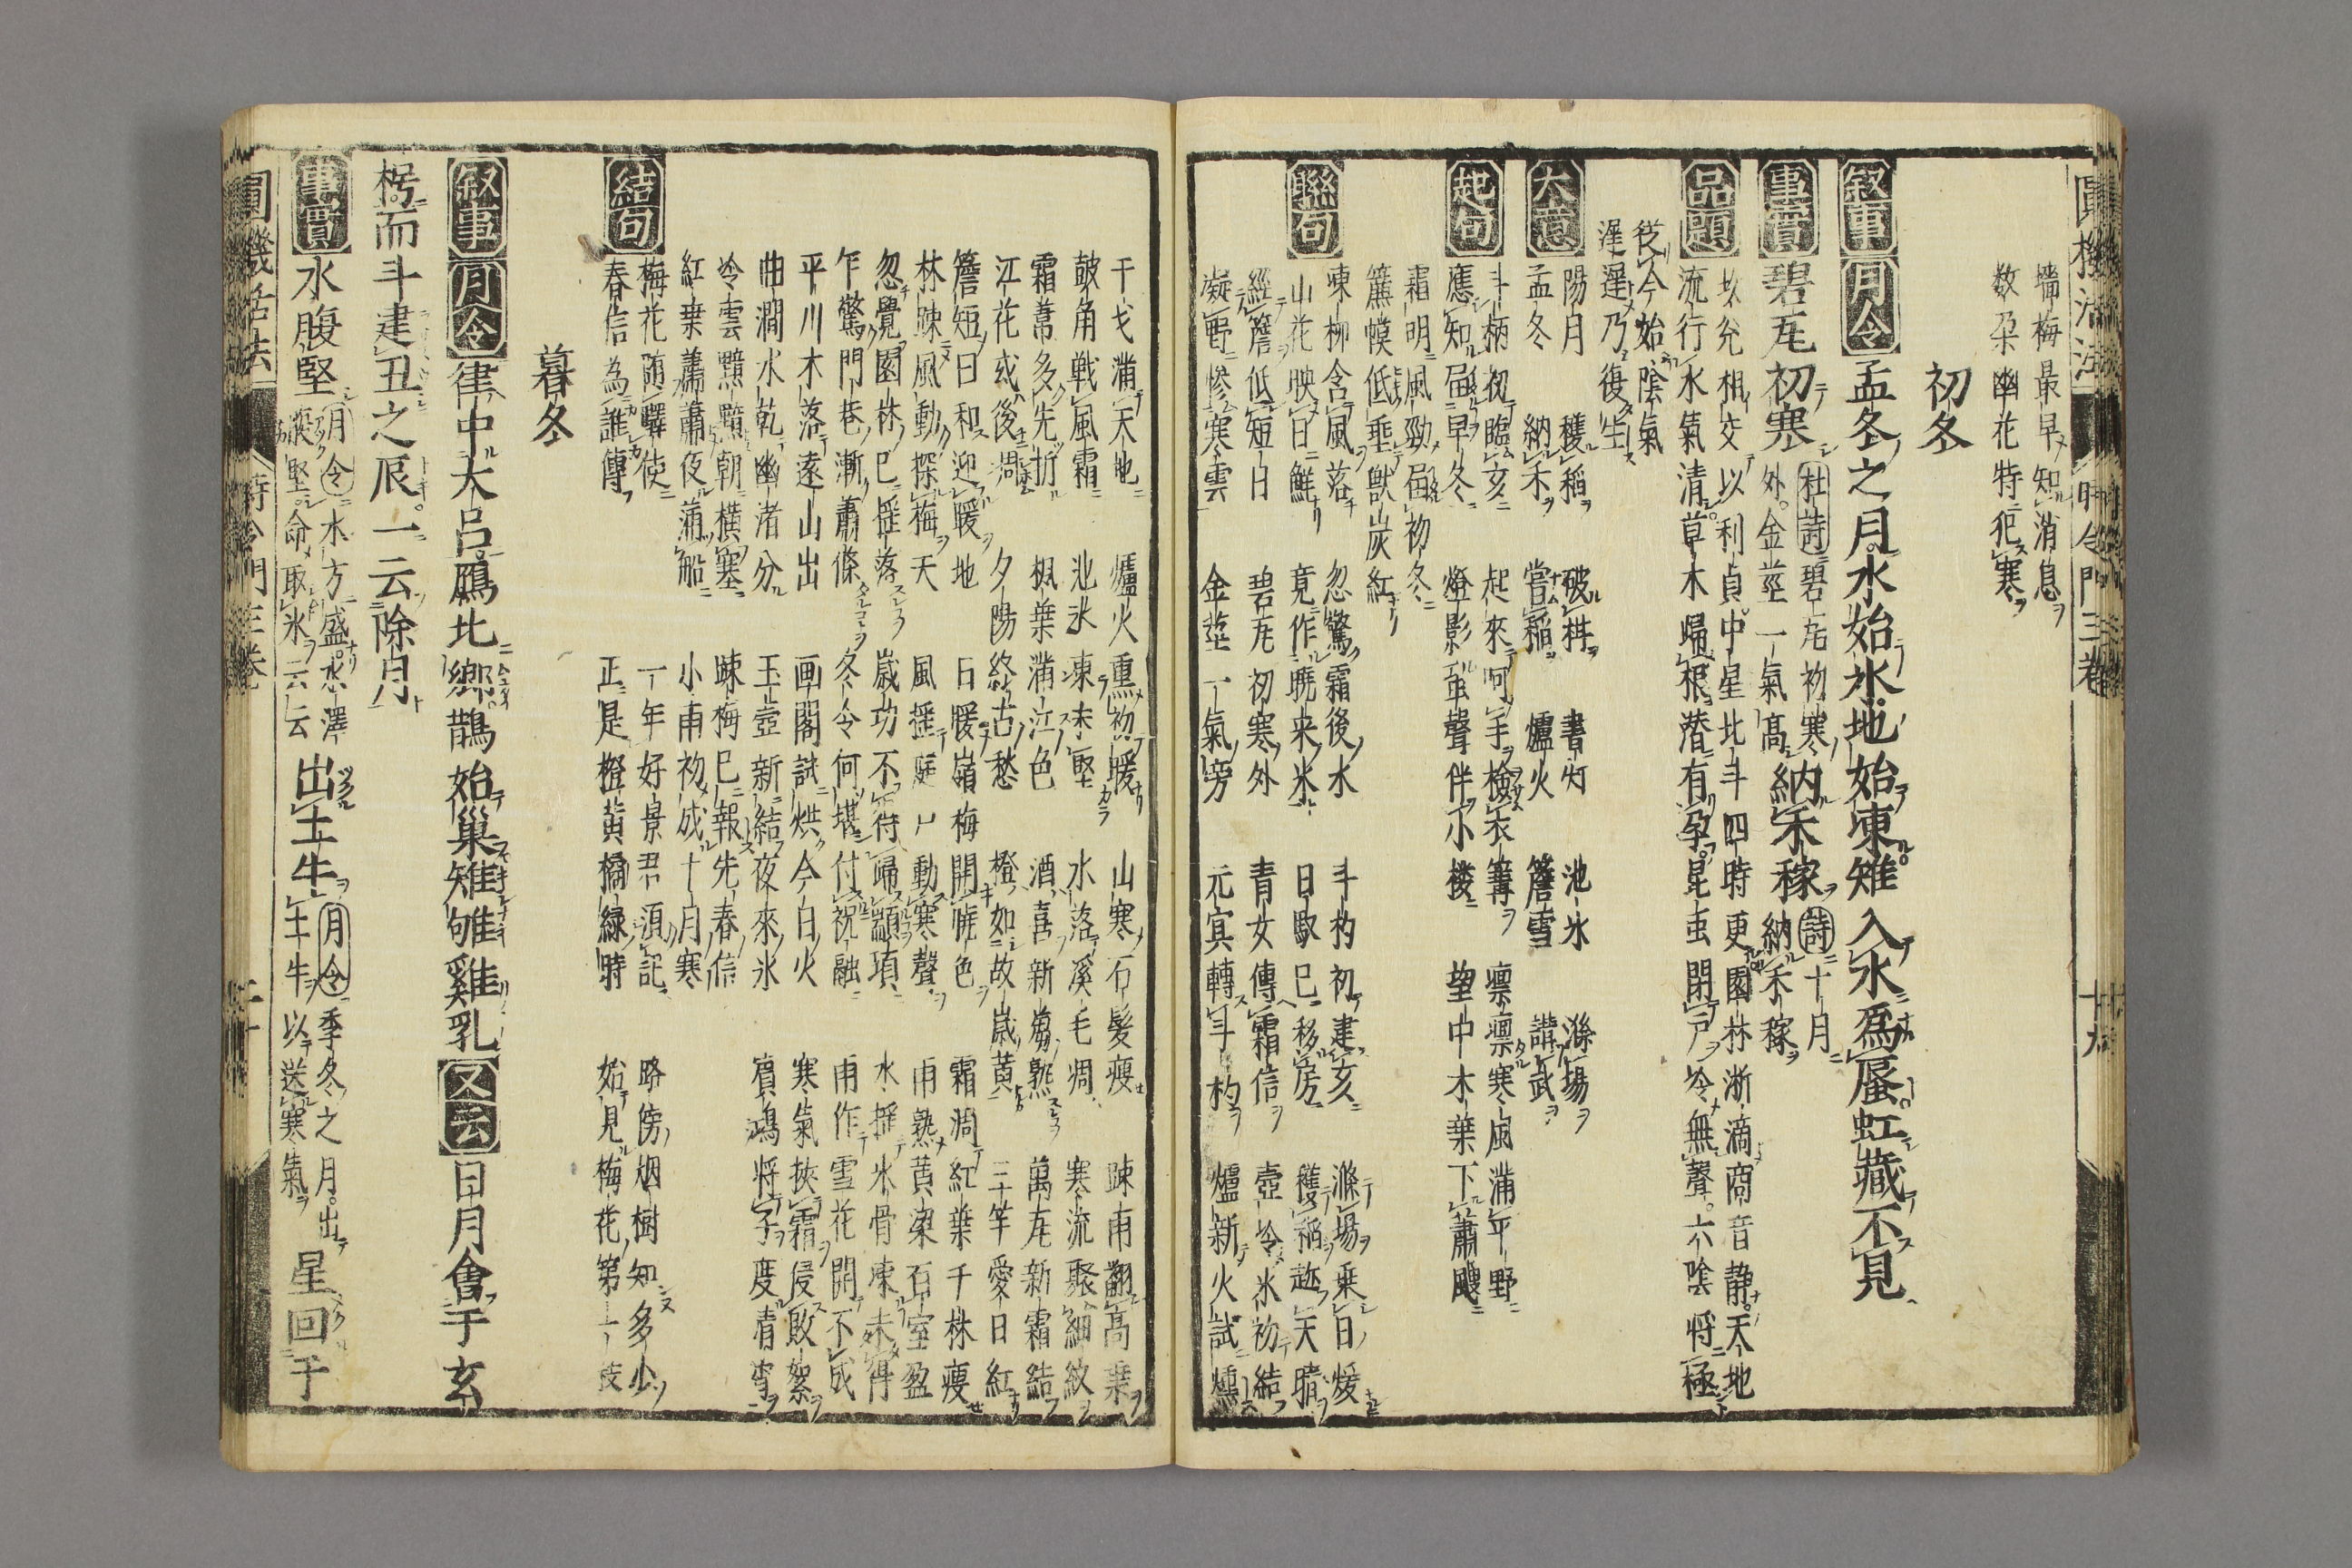 墻梅最早知消息
数朶幽花特犯寒
初冬
叙事 月令 孟冬之月水始氷地始凍雉入水爲蜃虹藏不見
事實 碧瓦初寒 杜詩碧瓦初寒外金莖一氣高 納禾稼 詩十月納禾稼
品題 以允相交以利貞中星北斗四時更園林淅滴商音静天地
流行水氣清草木歸根潜有孕昆虫閉戸冷無聲六陰将極
従今始陰氣
遅遅乃復生
大意 陽月 穫稲 破柑 書灯 池氷 滌場
孟冬 納禾 嘗稲 爐火 簷雪 講武
起句 斗柄初臨亥 起來呵手檢衣篝 凛凛寒風満平野
應知届早冬 燈影虽聲伴小楼 望中木葉下蕭颼
霜明風勁届初冬
簾幙低垂獣炭紅
聯句 凍柳含風落 忽驚霜後水 斗杓初建亥 滌場乗日煖
山花映日鮮 竟作曉来氷 日馭已移房 穫稲趂天晴
經簷低短日 碧瓦初寒外 青女傳霜信 壺冷氷初結
凝野慘寒雲 金莖一氣旁 元冥轉斗杓 爐新火試燻
干戈満天地 爐火熏初暖 山寒石髪痩 踈雨翻高葉
皷角戦風霜 池氷凍未堅 水落溪毛凋 寒流聚細紋
霜蒿多先折 楓葉満江色 酒喜新蒭熟 萬瓦新霜結
江花或後凋 夕陽終古愁 橙如故歳黄 三竿愛日紅
簷短日和迎暖地 日暖嶺梅開暁色 霜凋紅葉千林痩
林踈風動探梅天 風揺庭戸動寒聲 雨熟黄粱百室盈
忽覺園林已揺落 歳功不待歸顓頊 水揺氷骨凍未得
乍驚門巷漸蕭條 冬令何堪付祝融 雨作雪花開不成
平川木落遠山出 画閣試烘今日火 寒氣挾霜侵敗絮
曲澗水乾幽渚分 玉壺新結夜來氷 賓鴻将子度青霄
冷雲黯黯朝横塞 踈梅已報先春信
紅葉蕭蕭夜满船 小雨初成十月寒
結句 梅花随驛使 一年好景君須記 路傍烟樹知多少
春信為誰傳 正是橙黄橘緑時 始見梅花第一枝
暮冬
叙事 月令 律中大呂鴈北郷鵲始巣雉雊雞乳 又云 日月會于玄
枵而斗建丑之辰一云除月
事實 水腹堅 月令水方盛水澤腹堅命取氷云云 出土牛 月令季冬之月出土牛以送寒氣 星回于
圓機活法 時令門三巻 十九
圓機活法 時令門三巻 二十